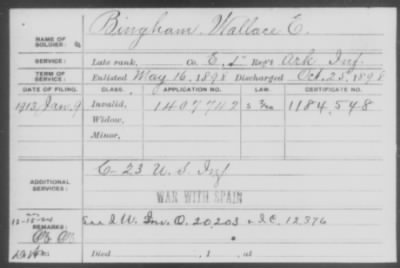 NAME OF SOLDIER: Bingham, Wallace E.
SERVICE: Late rank, Co. E, 1" Reg't Ark Inf.
TERM OF SERVICE: Enlisted May 16, 1898 Discharged Oct. 25, 1898
DATE OF FILING. CLASS. APPLICATION NO. LAW. CERTIFICATE NO.
1913, Jan. 9 Invalid, 1407742 1184,548
Widow,
Minor,
ADDITIONAL SERVICES: C-23 U.S. Inf
WAR WITH SPAIN
REMARKS: I.W. Inv. O. 20,203 + I.C. 12,376
Died , 1 , at